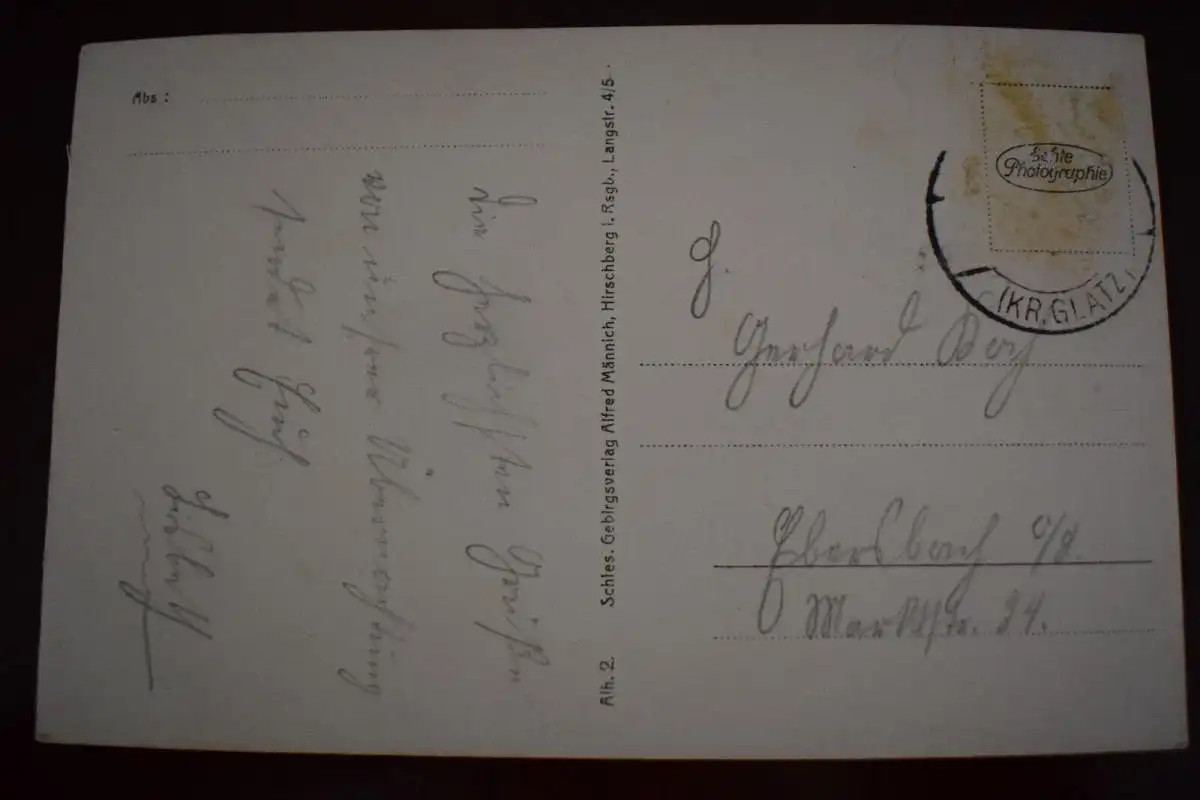 Abs :
Die herzlichsten Grüßen
von unserer Übernachtung
sendet Euch
Alh. 2. Schles. Gebirgsverlag Alfred Männich, Hirschberg i. Rsgb., Langstr. 4/5.
Echte
Photographie
(KR. GLATZ)
Gerhard
Ebersbach
Marktstr. 24.